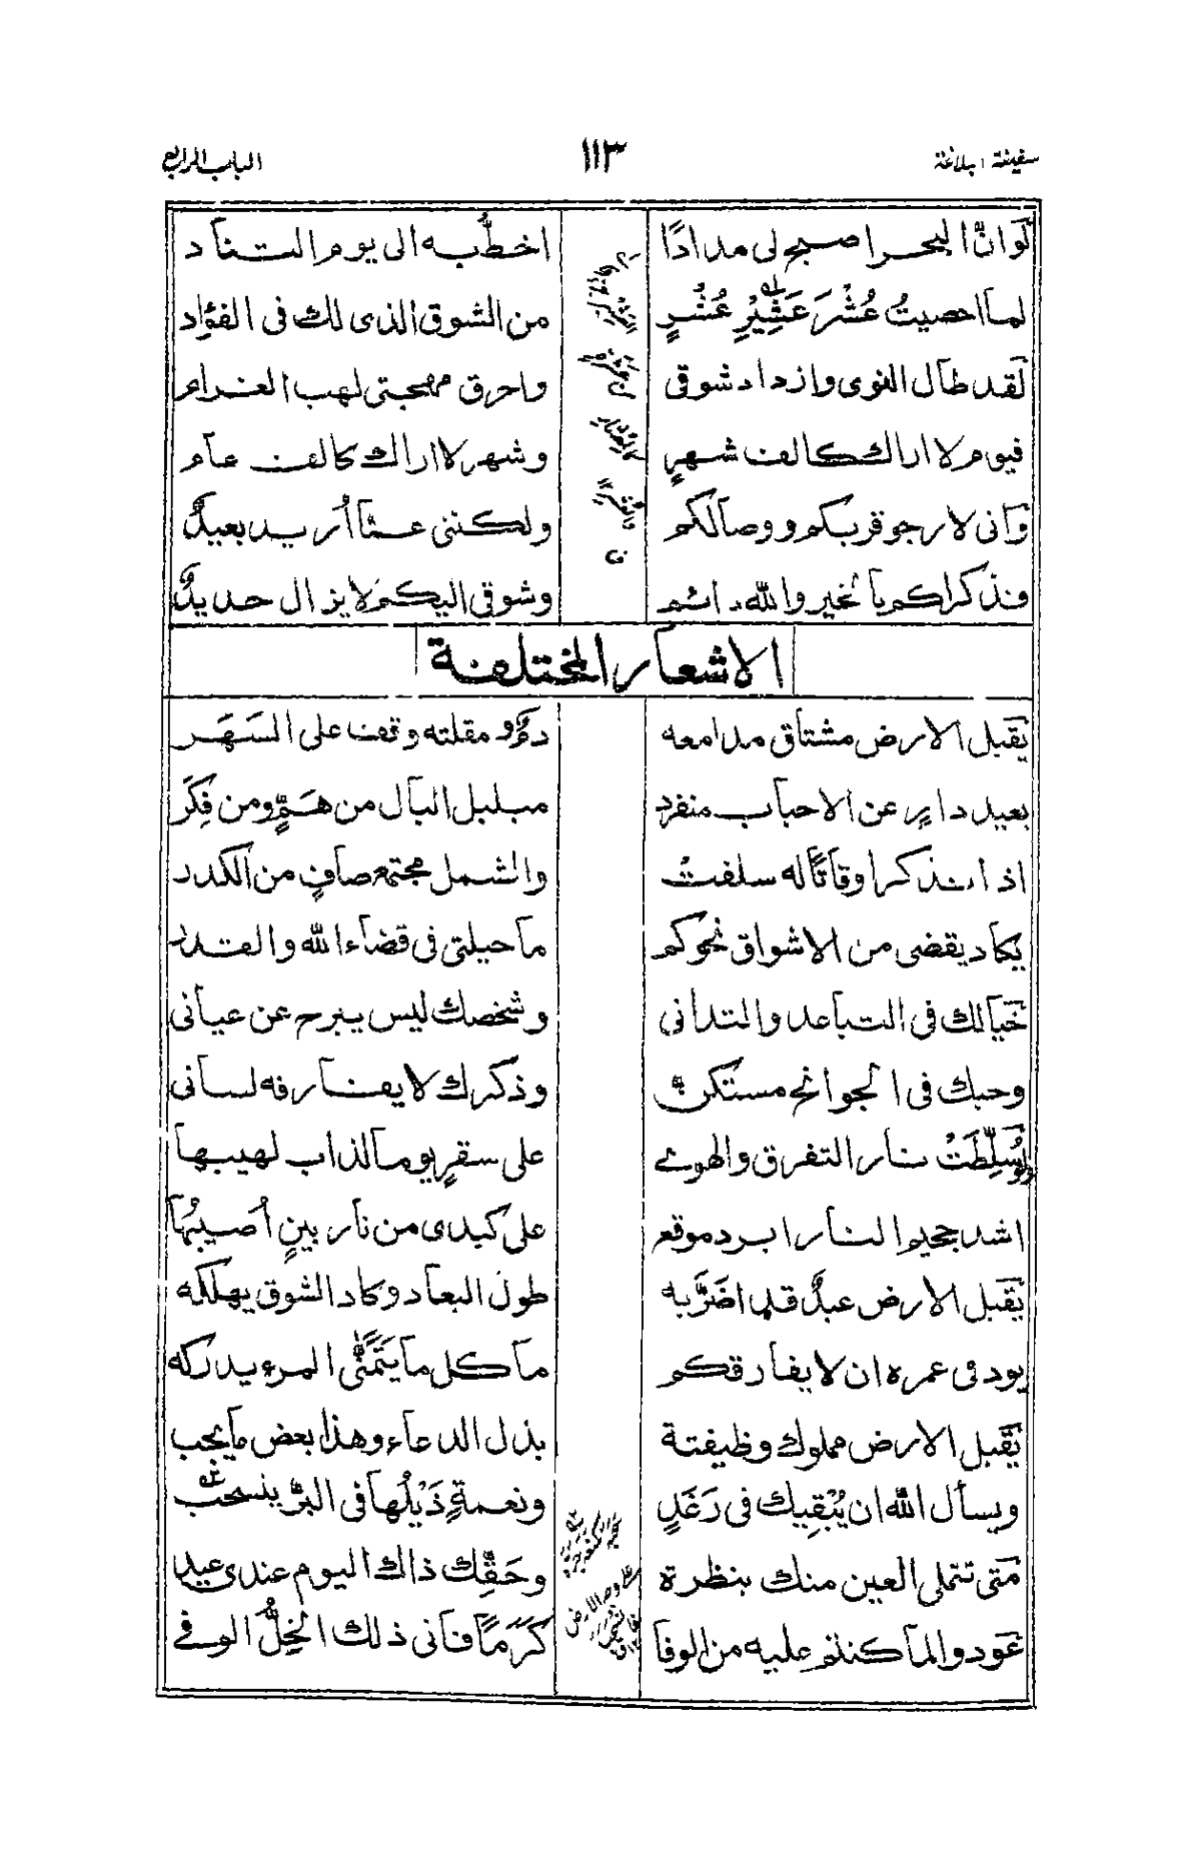 سفينة البلاغة ١١٣ الباب الرابع
لَوَانَّ البحر اصبح لى مدادًا اخطُّ به الى يوم التناد
لما احصيتُ عُشْرَ عَشِيْرِ عُشْرٍ من الشوق الذى لك فى الفؤاد
لقد طال النوى وازداد شوقى واحرق مهجتى لهب الغرام
فيوم لا اراك كالف شهرٍ وشهر لا اراك كالف عام
وانى لارجو قربكم ووصالكم ولكننى عمّا أريد بعيدٌ
وذكراكم بالخير والله دائم وشوقى اليكم لا يزال حديدٌ
الاشعار المختلفة
يقبل الارض مشتاق مدامعه ومقلته وقفا على السَهَر
بعيد دارٍ عن الاحباب منفرد مبلبل البال من هَمٍّ ومن فِكَر
اذا تذكر اوقاتًا له سلفت والشمل مجتمع صافٍ من الكدر
يكاد يقضى من الاشواق نحوكم ما حيلتى فى قضاء الله والقدر
خيالك فى التباعد والتدانى وشخصك ليس يبرح عن عيانى
وحبك فى الجوانح مستكنٌّ وذكرك لا يفارقه لسانى
ولو سُلِّطَتْ نار التفرق والهوى على سقرٍ يوما لذاب لهيبها
اشد جحيم النار ابرد موقع على كبدى من نار بينٍ أُصيبُها
يقبل الارض عبدٌ قد اضَرَّ به طول البعاد وكاد الشوق يهلكه
يود فى عمره ان لا يفارقكم ما كل ما يَتَمَنَّى المرء يدركه
يقبل الارض مملوك وظيفتة بذل الدعاء وهذا بعض ما يجب
ويسأل الله ان يُبْقِيك فى رَغَدٍ ونعمةٍ ذَيْلُها فى البرّ ينسحب
متى تتملى العين منك بنظرة وحَقِّك ذاك اليوم عندى عيد
عودوا لما كنتم عليه من الوفا كَرَمًا فانى ذلك الخِلُّ الوفى